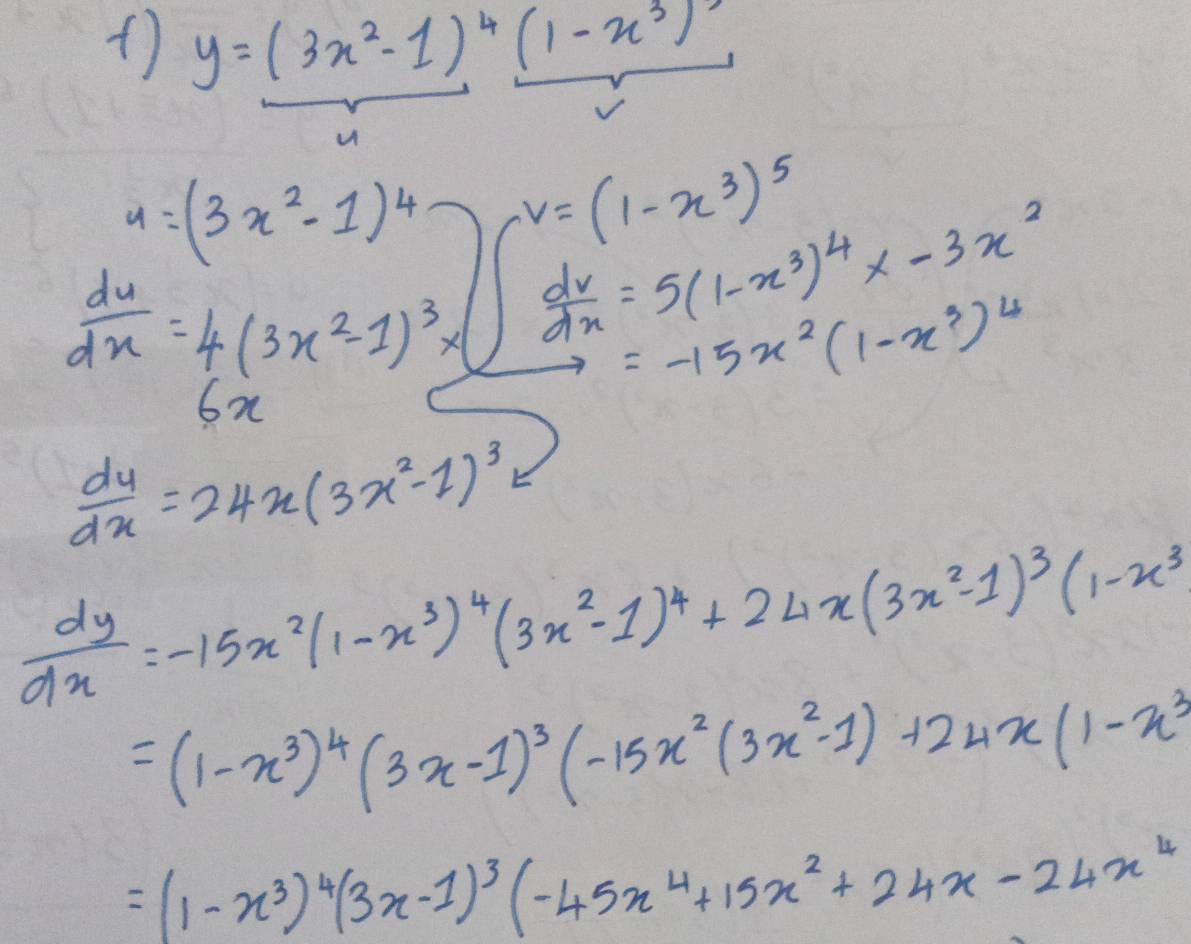 f) y = (3x² - 1)⁴ (1 - x³)
u
v
u = (3x² - 1)⁴
v = (1 - x³)⁵
du/dx = 4(3x² - 1)³ ×
6x
dv/dx = 5(1 - x³)⁴ × -3x²
= -15x²(1 - x³)⁴
du/dx = 24x(3x² - 1)³
dy/dx = -15x²(1 - x³)⁴(3x² - 1)⁴ + 24x(3x² - 1)³(1 - x³
= (1 - x³)⁴(3x - 1)³(-15x²(3x² - 1) + 24x(1 - x³
= (1 - x³)⁴(3x - 1)³(-45x⁴ + 15x² + 24x - 24x⁴